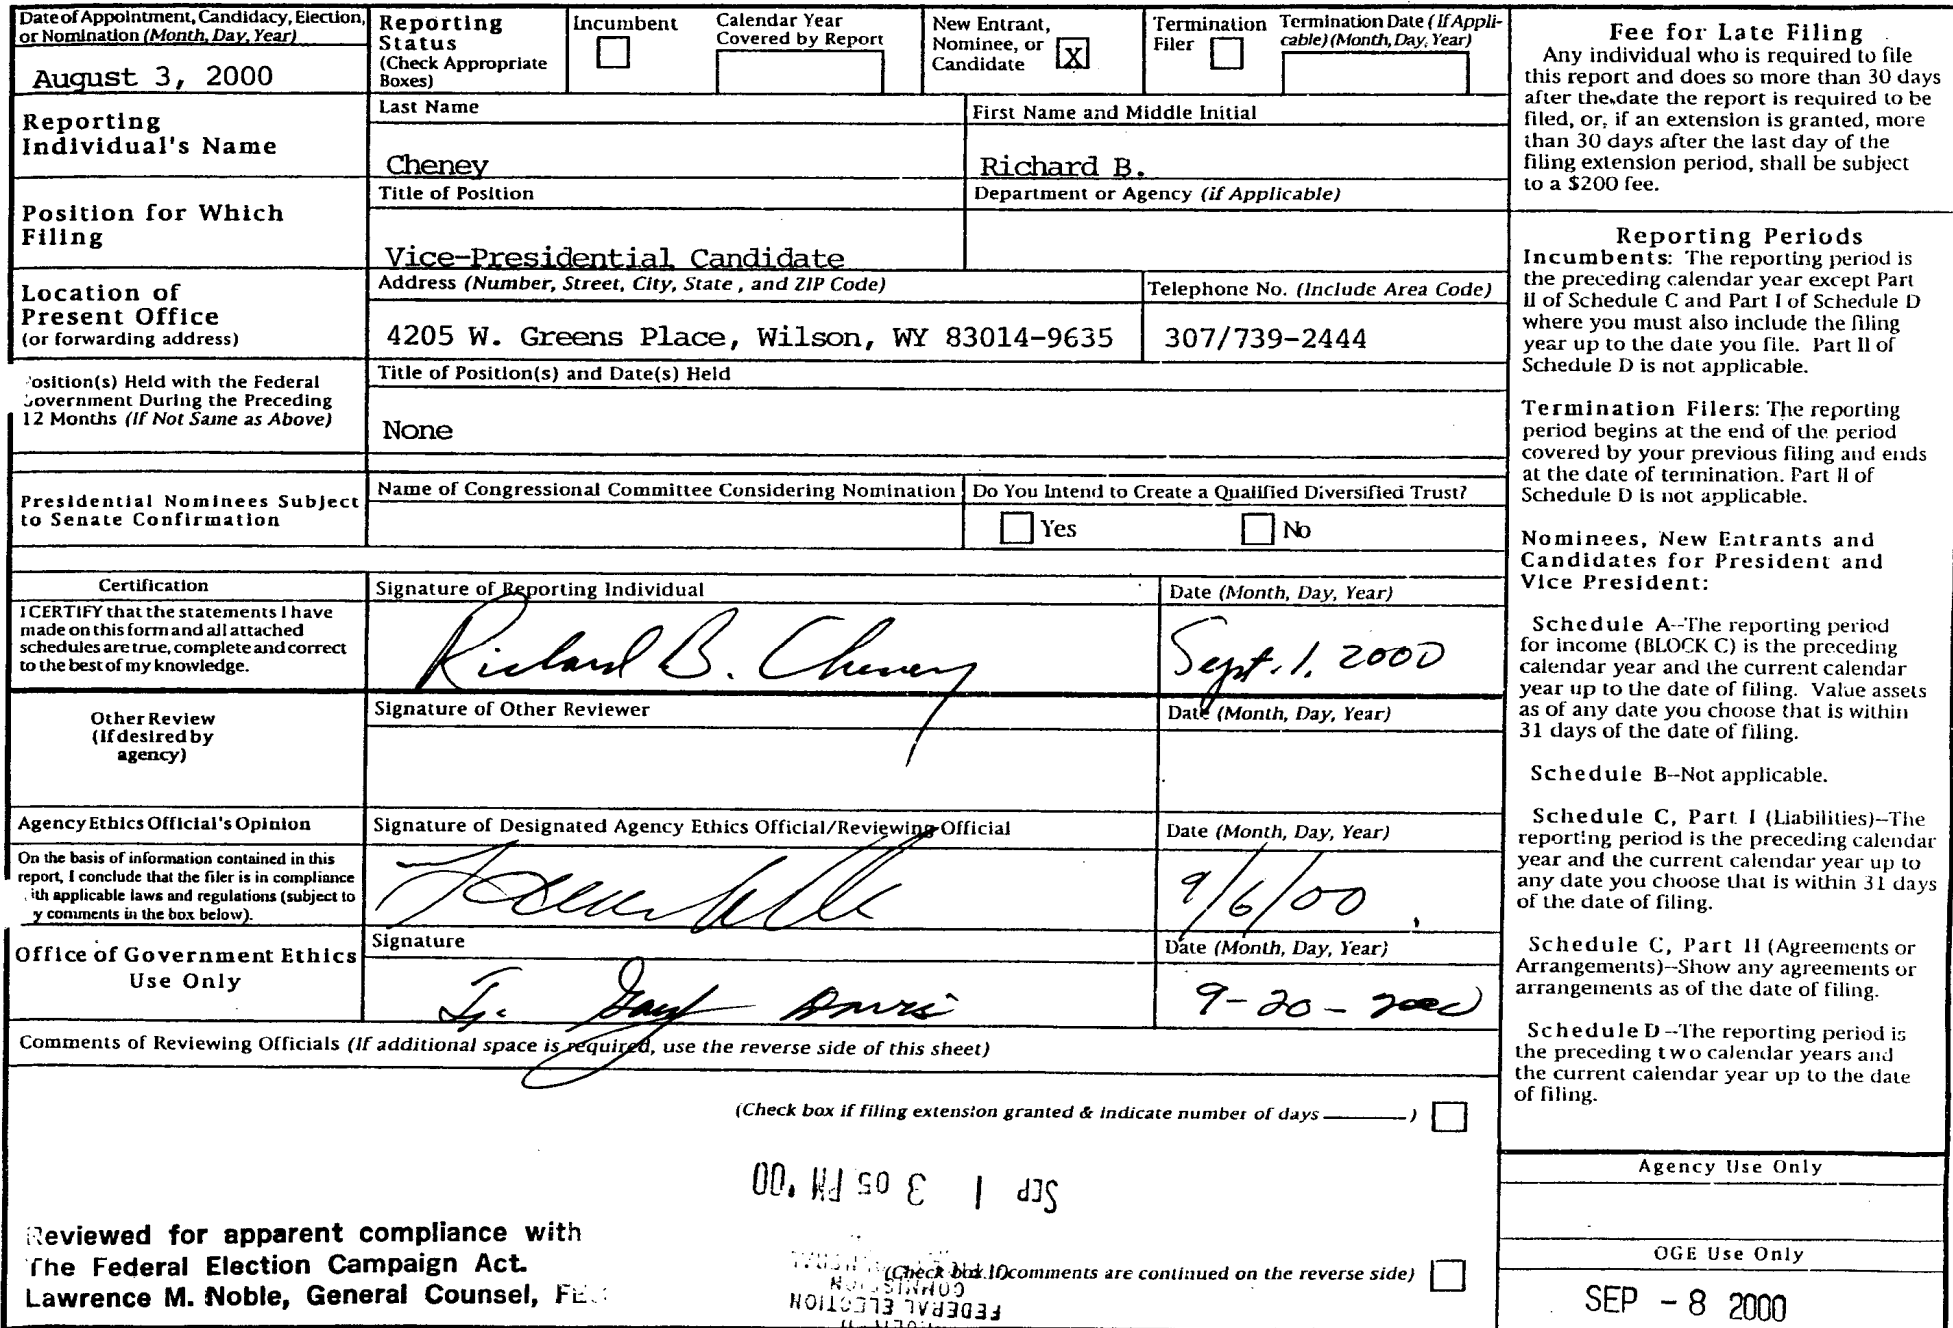 Date of Appointment, Candidacy, Election,
or Nomination (Month, Day, Year)
August 3, 2000
Reporting
Status
(Check Appropriate
Boxes)
Incumbent
Calendar Year
Covered by Report
New Entrant,
Nominee, or
Candidate X
Termination
Filer
Termination Date (If Appli-
cable) (Month, Day, Year)
Reporting
Individual's Name
Last Name
Cheney
First Name and Middle Initial
Richard B.
Position for Which
Filing
Title of Position
Vice-Presidential Candidate
Department or Agency (if Applicable)
Location of
Present Office
(or forwarding address)
Address (Number, Street, City, State , and ZIP Code)
4205 W. Greens Place, Wilson, WY 83014-9635
Telephone No. (Include Area Code)
307/739-2444
osition(s) Held with the Federal
overnment During the Preceding
12 Months (If Not Same as Above)
Title of Position(s) and Date(s) Held
None
Presidential Nominees Subject
to Senate Confirmation
Name of Congressional Committee Considering Nomination
Do You Intend to Create a Qualified Diversified Trust?
Yes
No
Certification
I CERTIFY that the statements I have
made on this form and all attached
schedules are true, complete and correct
to the best of my knowledge.
Signature of Reporting Individual
Richard B. Cheney
Date (Month, Day, Year)
Sept. 1, 2000
Other Review
(If desired by
agency)
Signature of Other Reviewer
Date (Month, Day, Year)
Agency Ethics Official's Opinion
On the basis of information contained in this
report, I conclude that the filer is in compliance
ith applicable laws and regulations (subject to
y comments in the box below).
Signature of Designated Agency Ethics Official/Reviewing Official
Date (Month, Day, Year)
9/6/00
Office of Government Ethics
Use Only
Signature
Davis
Date (Month, Day, Year)
9-20-2000
Comments of Reviewing Officials (If additional space is required, use the reverse side of this sheet)
(Check box if filing extension granted & indicate number of days ______ )
SEP 1 3 05 PM '00
Reviewed for apparent compliance with
The Federal Election Campaign Act.
Lawrence M. Noble, General Counsel, FEC
(Check box if comments are continued on the reverse side)
FEDERAL ELECTION
COMMISSION
Fee for Late Filing
Any individual who is required to file
this report and does so more than 30 days
after the date the report is required to be
filed, or, if an extension is granted, more
than 30 days after the last day of the
filing extension period, shall be subject
to a $200 fee.
Reporting Periods
Incumbents: The reporting period is
the preceding calendar year except Part
II of Schedule C and Part I of Schedule D
where you must also include the filing
year up to the date you file. Part II of
Schedule D is not applicable.
Termination Filers: The reporting
period begins at the end of the period
covered by your previous filing and ends
at the date of termination. Part II of
Schedule D is not applicable.
Nominees, New Entrants and
Candidates for President and
Vice President:
Schedule A--The reporting period
for income (BLOCK C) is the preceding
calendar year and the current calendar
year up to the date of filing. Value assets
as of any date you choose that is within
31 days of the date of filing.
Schedule B--Not applicable.
Schedule C, Part I (Liabilities)--The
reporting period is the preceding calendar
year and the current calendar year up to
any date you choose that is within 31 days
of the date of filing.
Schedule C, Part II (Agreements or
Arrangements)--Show any agreements or
arrangements as of the date of filing.
Schedule D--The reporting period is
the preceding two calendar years and
the current calendar year up to the date
of filing.
Agency Use Only
OGE Use Only
SEP - 8 2000